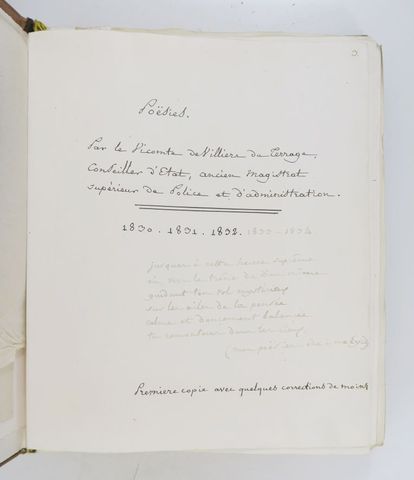 3.
Poësies.
Par le Vicomte de Villiers du Terrage,
Conseiller d'Etat, ancien magistrat
supérieur de Police et d'administration.
1830. 1831. 1832. 1833 - 1834
jusques à cette heure suprême
où vers le trône de
guidant ton vol mystérieux
sur les ailes de la pensée
calme et doucement balancée
tu
Première copie avec quelques corrections de moins